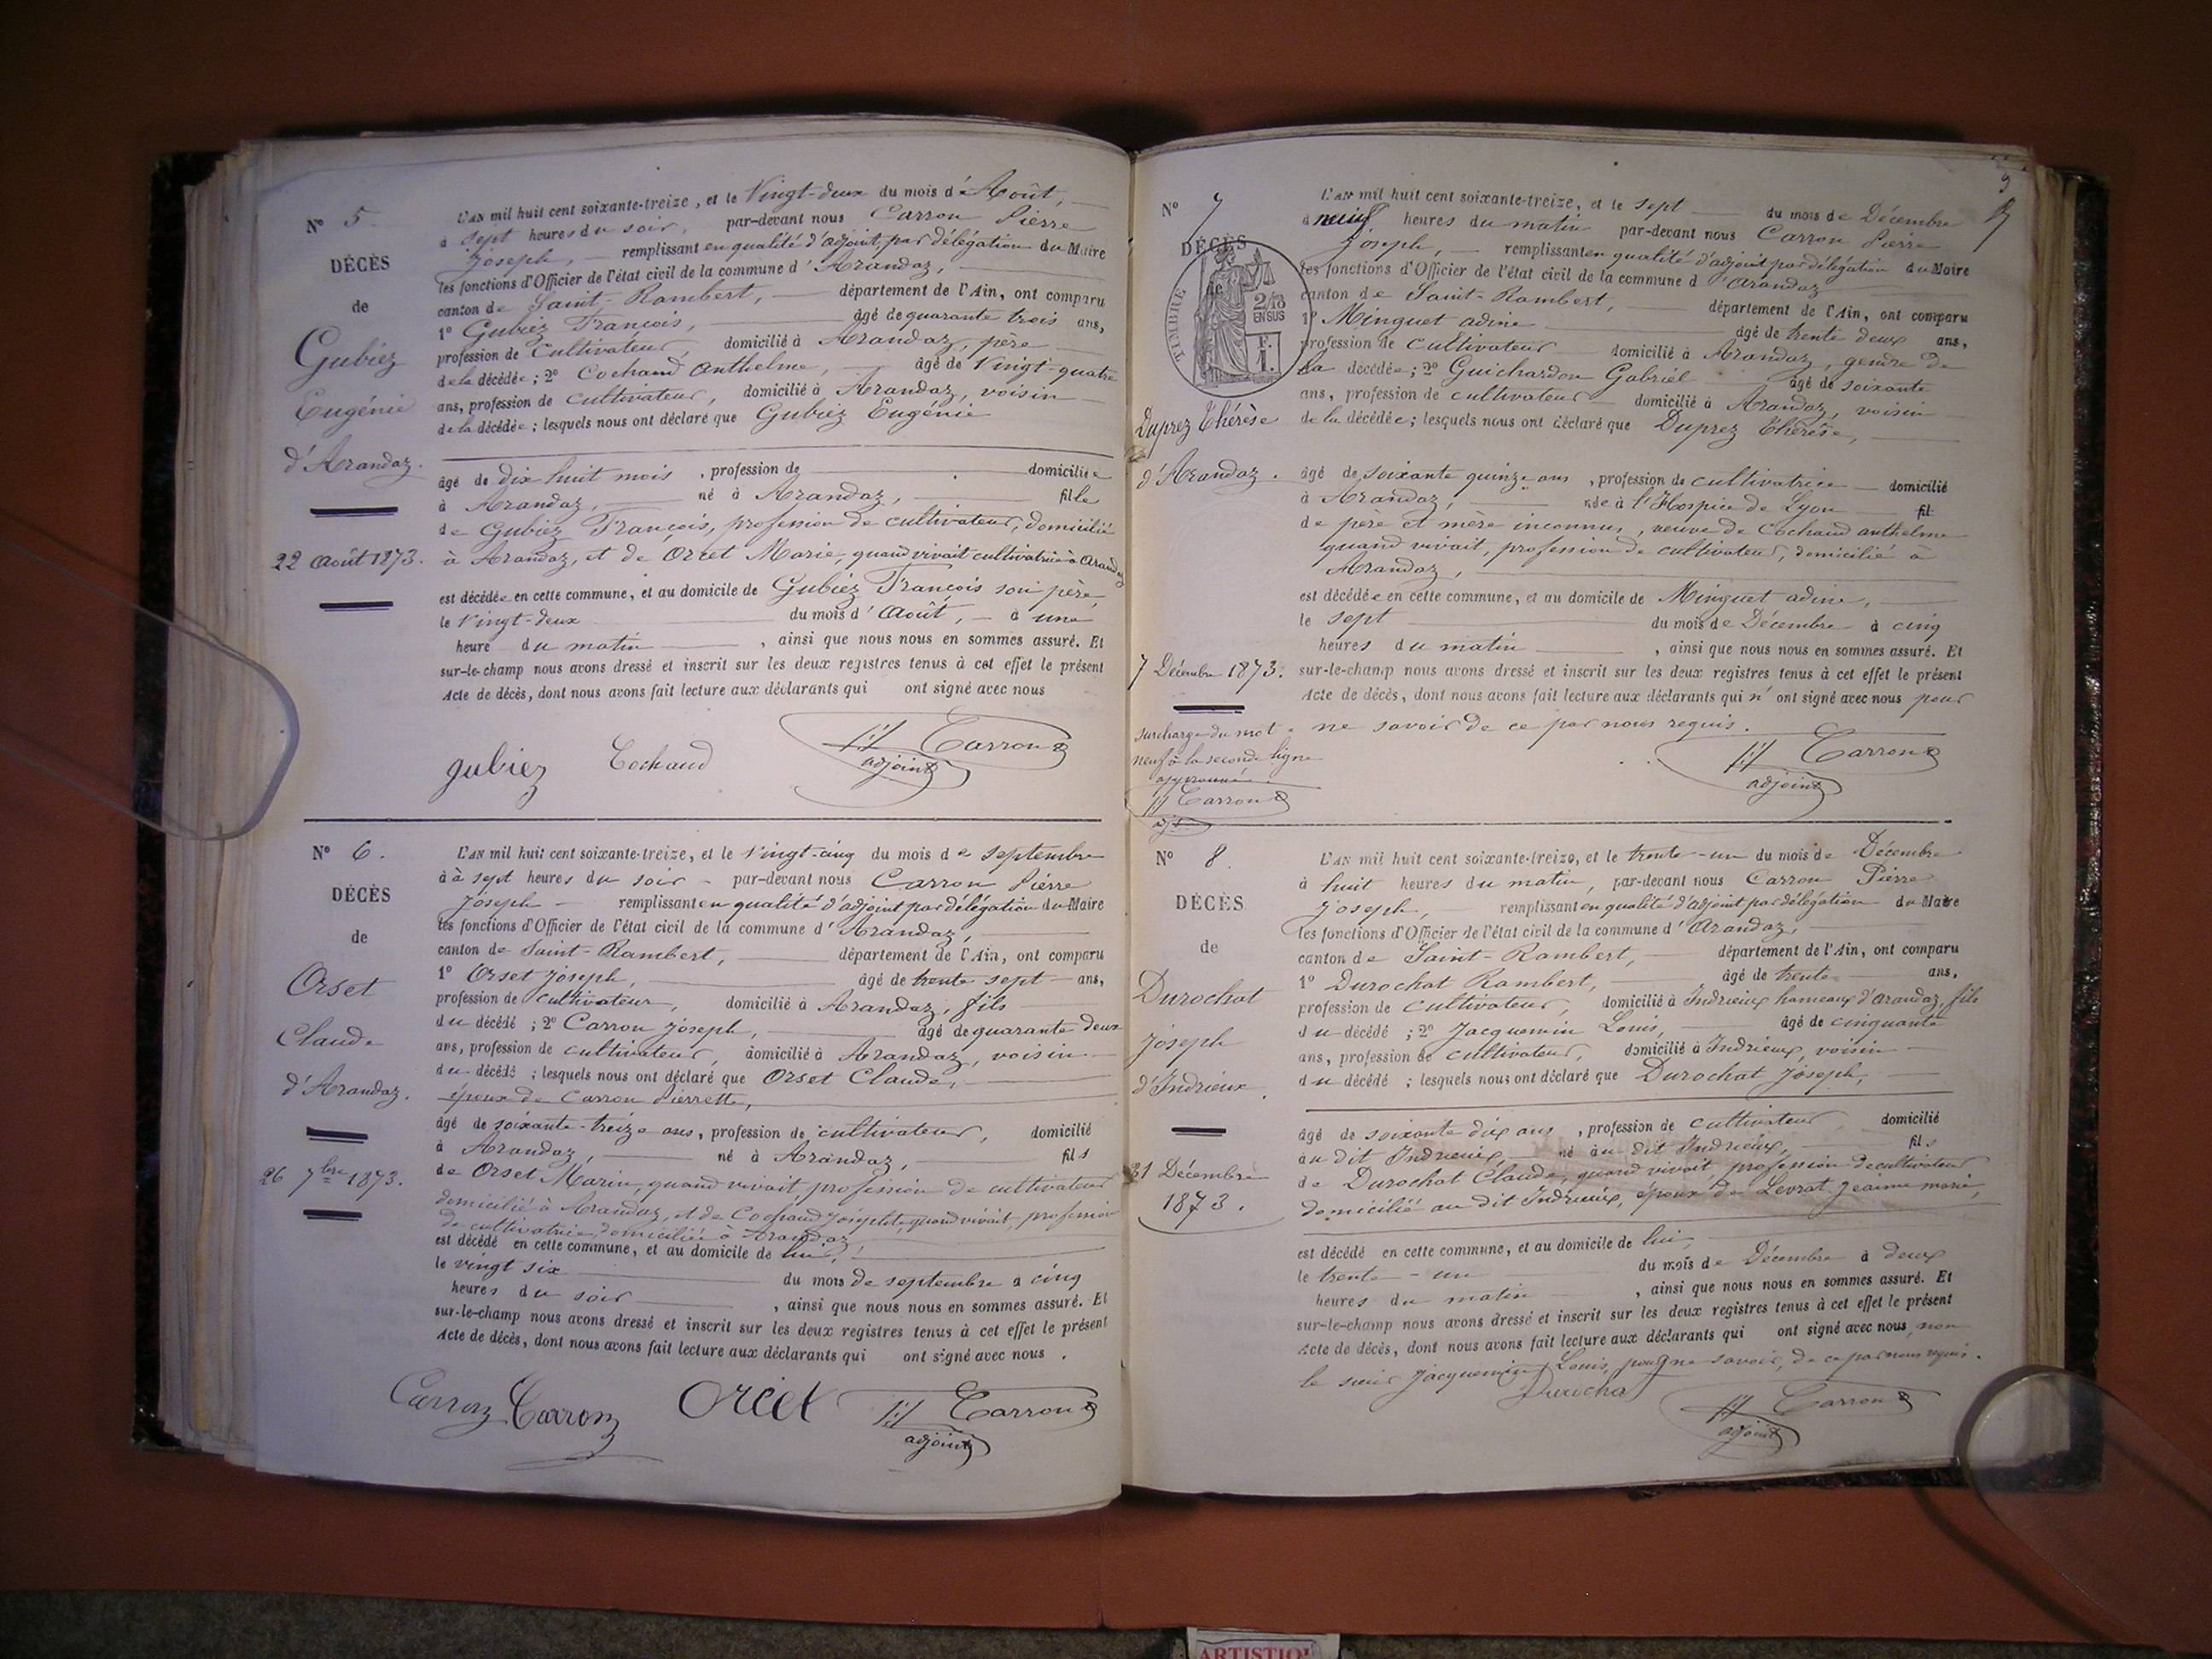 N° 5.
DÉCÈS
de
Gubiez
Eugénie
d'Arandaz.
22 Août 1873.
L'AN mil huit cent soixante-treize, et le Vingt-deux du mois d'Août,
à sept heures du soir, par-devant nous Carron Pierre
Joseph, remplissant en qualité d'adjoint, par délégation du Maire
les fonctions d'Officier de l'état civil de la commune d'Arandaz,
canton de Saint-Rambert, département de l'Ain, ont comparu
1° Gubiez François, âgé de quarante trois ans,
profession de Cultivateur, domicilié à Arandaz, père
de la décédée ; 2° Cochaud Anthelme, âgé de Vingt-quatre
ans, profession de cultivateur, domicilié à Arandaz, voisin
de la décédée ; lesquels nous ont déclaré que Gubiez Eugénie
âgé de dix huit mois, profession de domiciliée
à Arandaz, né à Arandaz, fille
de Gubiez François, profession de cultivateur, domicilié
à Arandaz, et de Orcet Marie, quand vivait cultivatrice à Arandaz
est décédée en cette commune, et au domicile de Gubiez François son père,
le Vingt-deux du mois d'Août, à une
heure du matin, ainsi que nous nous en sommes assuré. Et
sur-le-champ nous avons dressé et inscrit sur les deux registres tenus à cet effet le présent
Acte de décès, dont nous avons fait lecture aux déclarants qui ont signé avec nous
gubiez Cochaud Carron
adjoint
N° 6.
DÉCÈS
de
Orset
Claude
d'Arandaz.
26 7bre 1873.
L'AN mil huit cent soixante-treize, et le Vingt-cinq du mois de septembre
à à sept heures du soir par-devant nous Carron Pierre
Joseph remplissant en qualité d'adjoint par délégation du Maire
les fonctions d'Officier de l'état civil de la commune d'Arandaz,
canton de Saint-Rambert, département de l'Ain, ont comparu
1° Orset Joseph, âgé de trente sept ans,
profession de cultivateur, domicilié à Arandaz, fils
du décédé ; 2° Carron Joseph, âgé de quarante deux
ans, profession de cultivateur, domicilié à Arandaz, voisin
du décédé ; lesquels nous ont déclaré que Orset Claude,
époux de Carron Pierrette,
âgé de soixante-treize ans, profession de cultivateur, domicilié
à Arandaz, né à Arandaz, fils
de Orset Marin, quand vivait, profession de cultivateur
domicilié à Arandaz, et de Cochaud Josephte, quand vivait, profession
de cultivatrice, domiciliée à Arandaz
est décédé en cette commune, et au domicile de lui,
le vingt six du mois de septembre à cinq
heures du soir, ainsi que nous nous en sommes assuré. Et
sur-le-champ nous avons dressé et inscrit sur les deux registres tenus à cet effet le présent
Acte de décès, dont nous avons fait lecture aux déclarants qui ont signé avec nous.
Carron Carron Orcet Carron
adjoint
9
N° 7
DÉCÈS
de
TIMBRE
2/10
EN SUS
F.
1.
Duprez Thérèse
d'Arandaz.
7 Décembre 1873.
surcharge du mot
neuf à la seconde ligne
approuvée.
Carron
adj
L'AN mil huit cent soixante-treize, et le sept du mois de Décembre
à neuf heures du matin par-devant nous Carron Pierre
Joseph, remplissant en qualité d'adjoint par délégation du Maire
les fonctions d'Officier de l'état civil de la commune d'Arandaz
canton de Saint-Rambert, département de l'Ain, ont comparu
1° Minguet adine âgé de trente deux ans,
profession de cultivateur domicilié à Arandaz, gendre de
la décédée ; 2° Guichardon Gabriel âgé de soixante
ans, profession de cultivateur domicilié à Arandaz, voisin
de la décédée ; lesquels nous ont déclaré que Duprez Thérèse,
âgé de soixante quinze ans, profession de cultivatrice domicilié
à Arandaz, née à l'Hospice de Lyon fil
de père et mère inconnus, veuve de Cochaud anthelme
quand vivait, profession de cultivateur, domicilié à
Arandaz,
est décédée en cette commune, et au domicile de Minguet adine,
le sept du mois de Décembre à cinq
heures du matin, ainsi que nous nous en sommes assuré. Et
sur-le-champ nous avons dressé et inscrit sur les deux registres tenus à cet effet le présent
Acte de décès, dont nous avons fait lecture aux déclarants qui n'ont signé avec nous pour
ne savoir de ce par nous requis.
Carron
adjoint
N° 8.
DÉCÈS
de
Durochat
Joseph
d'Indrieux.
31 Décembre
1873.
L'AN mil huit cent soixante-treize, et le trente-un du mois de Décembre
à huit heures du matin, par-devant nous Carron Pierre
Joseph, remplissant en qualité d'adjoint par délégation du Maire
les fonctions d'Officier de l'état civil de la commune d'Arandaz,
canton de Saint-Rambert, département de l'Ain, ont comparu
1° Durochat Rambert, âgé de trente ans,
profession de cultivateur, domicilié à Indrieux hameaux d'arandaz, fils
du décédé ; 2° Jacquemin Louis, âgé de cinquante
ans, profession de cultivateur, domicilié à Indrieux, voisin
du décédé ; lesquels nous ont déclaré que Durochat Joseph,
âgé de soixante dix ans, profession de cultivateur domicilié
au dit Indrieux, né au dit Indrieux, fils
de Durochat Claude, quand vivait, profession de cultivateur
domicilié au dit Indrieux, époux de Levrat Jeanne marie,
est décédé en cette commune, et au domicile de lui,
le trente-un du mois de Décembre à deux
heures du matin, ainsi que nous nous en sommes assuré. Et
sur-le-champ nous avons dressé et inscrit sur les deux registres tenus à cet effet le présent
Acte de décès, dont nous avons fait lecture aux déclarants qui ont signé avec nous, non
le sieur Jacquemin Louis, pour ne savoir, de ce par nous requis.
Durochat Carron
adjoint
ARTISTIQ